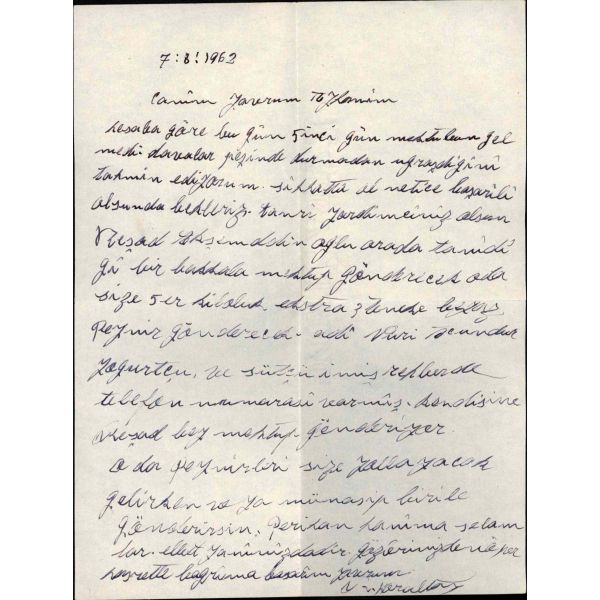 7:8:1962
Canım Yavrum
hesaba göre bu gün 5inci gün mektubun gel
medi. davalar peşinde durmadan uğraşdiğini
tahmin ediyorum. sıhhatta ol netice başarılı
olsunda bekleriz. tanrı yardimciniz olsun
Reşad oğlu orada tanidi
ği bir bakkala mektup göndericek oda
size 5er kiloluk ekstra 3 teneke beyaz
peynir gönderecek. adi Nuri
Yoğurtçu, ve sütçü imiş rehberde
telefon numarasi varmiş. kendisine
Reşad bey mektup gönderiyor.
O da peynirleri size yollayacak
gelirken ve ya münasip birile
gönderirsin. Perihan hanıma selam
lar. yanınızdadir. gözlerinizden öper
hasretle bağrıma basarım yavrum